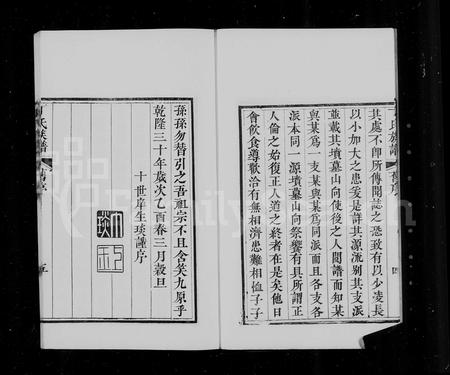 其處不即所傳聞誌之恐致有以少凌長
以小加大之患爰是詳其源流別其支派
並載其墳墓山向使後之人閱譜而知某
與某爲 支某與某爲同派而且各支各
派本同一源墳墓山向祭饗有具所謂正
人倫之始復正人道之終者在是矣他日
會飲食尊歡洽有無相濟患難相恤子子
孫孫勿替引之吾祖宗不且含笑九原乎
乾隆三十年歲次乙酉春三月穀旦
十世庠生琰謹序
氏族譜
舊序